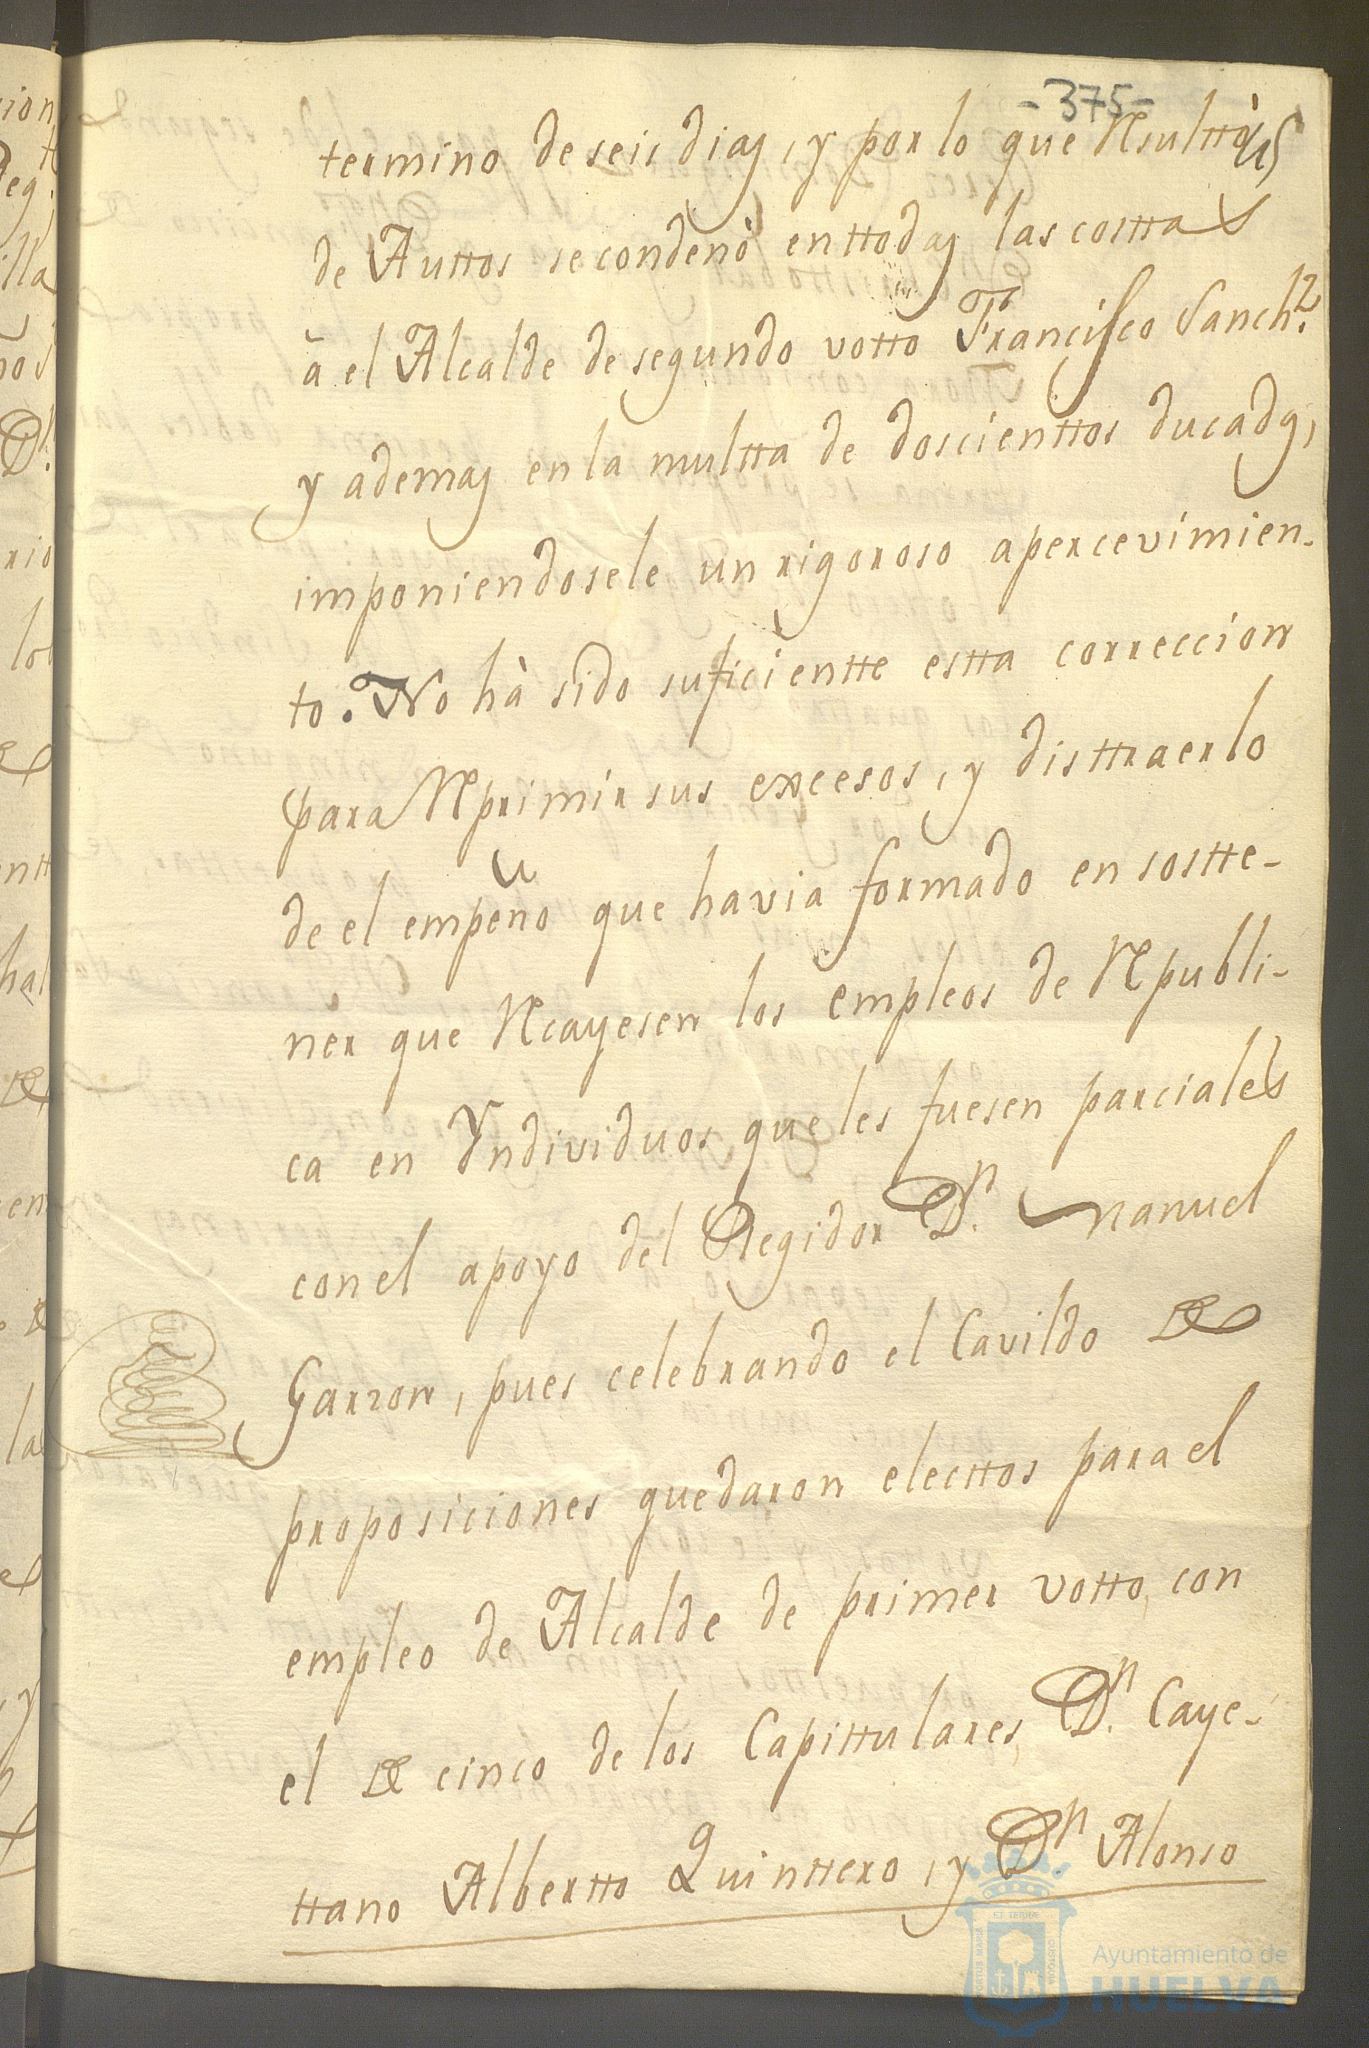 -375-
termino de seis dias, y por lo que Resulttò
de Auttos se condenò en ttodas las costtas
â el Alcalde de segundo votto Francisco Sanchz.
y ademas en la multta de doscienttos ducados,
imponiendosele un rigoroso apercevimien-
to. No hà sido suficientte estta correccion
para Reprimir sus excesos, y disttraerlo
de el empeño que havia formado en sostte-
ner que Recayesen los empleos de Republi-
ca en Yndividuos que les fuesen parciales
con el apoyo del Regidor Dn. Manuel
Garzon, pues celebrando el Cavildo de
proposiciones quedaron electtos para el
empleo de Alcalde de primer votto, con
el de cinco de los Capittulares, Dn. Caye-
ttano Albertto Quinttero, y Dn. Alonso
Ayuntamiento de
HUELVA